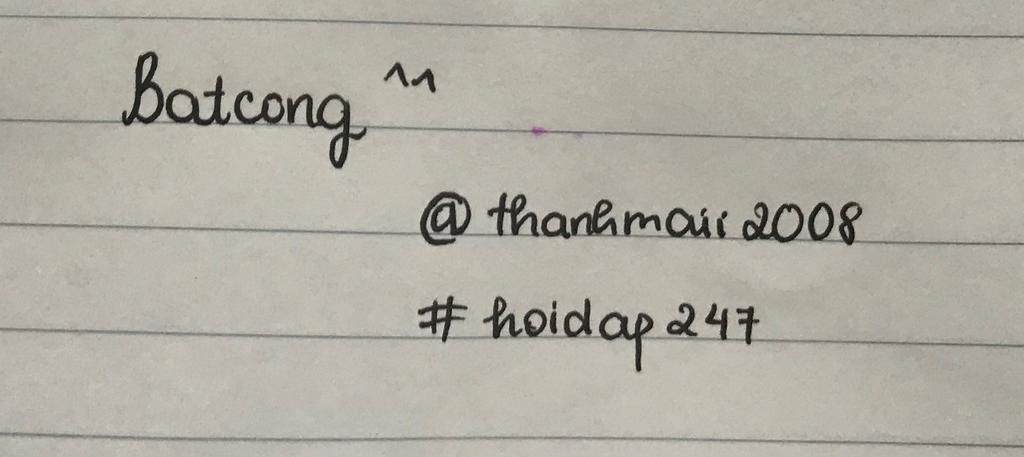 Batcong ^^
@thanhmaii2008
#hoidap247